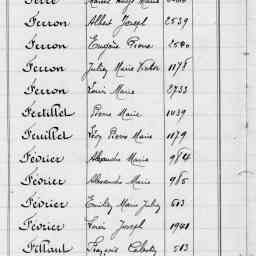 Ferré Marie
Ferron Albert Joseph 2539
Ferron Eugène Pierre 2540
Ferron Julien Marie Victor 1178
Ferron Louis Marie 2733
Fertillet Pierre Marie 1039
Feuillet Léon Pierre Marie 1179
Février Alexandre Marie 984
Février Alexandre Marie 985
Février Emilien Marie Julien 513
Février Louis Joseph 1941
Fillaut François Célestin 513